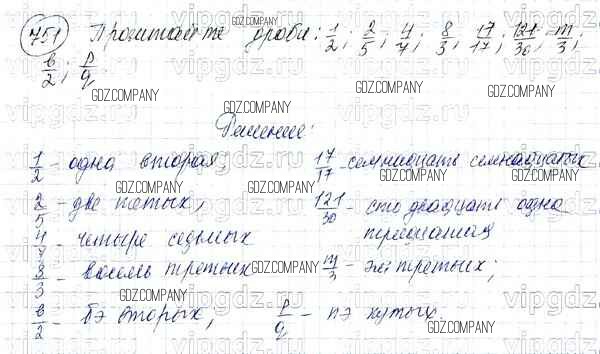 751 Прочитайте дроби: 1/2; 2/5; 4/7; 8/3; 17/17; 121/30; m/3;
b/2; p/q.
Решение:
1/2 - одна вторая; 17/17 - семнадцать семнадцатых
2/5 - две пятых; 121/30 - сто двадцать одна тридцатая
4/7 - четыре седьмых
8/3 - восемь третьих m/3 - эм третьих;
b/2 - бэ вторых; p/q - пэ кутых.
GDZ.COMPANY
vipgdz.ru